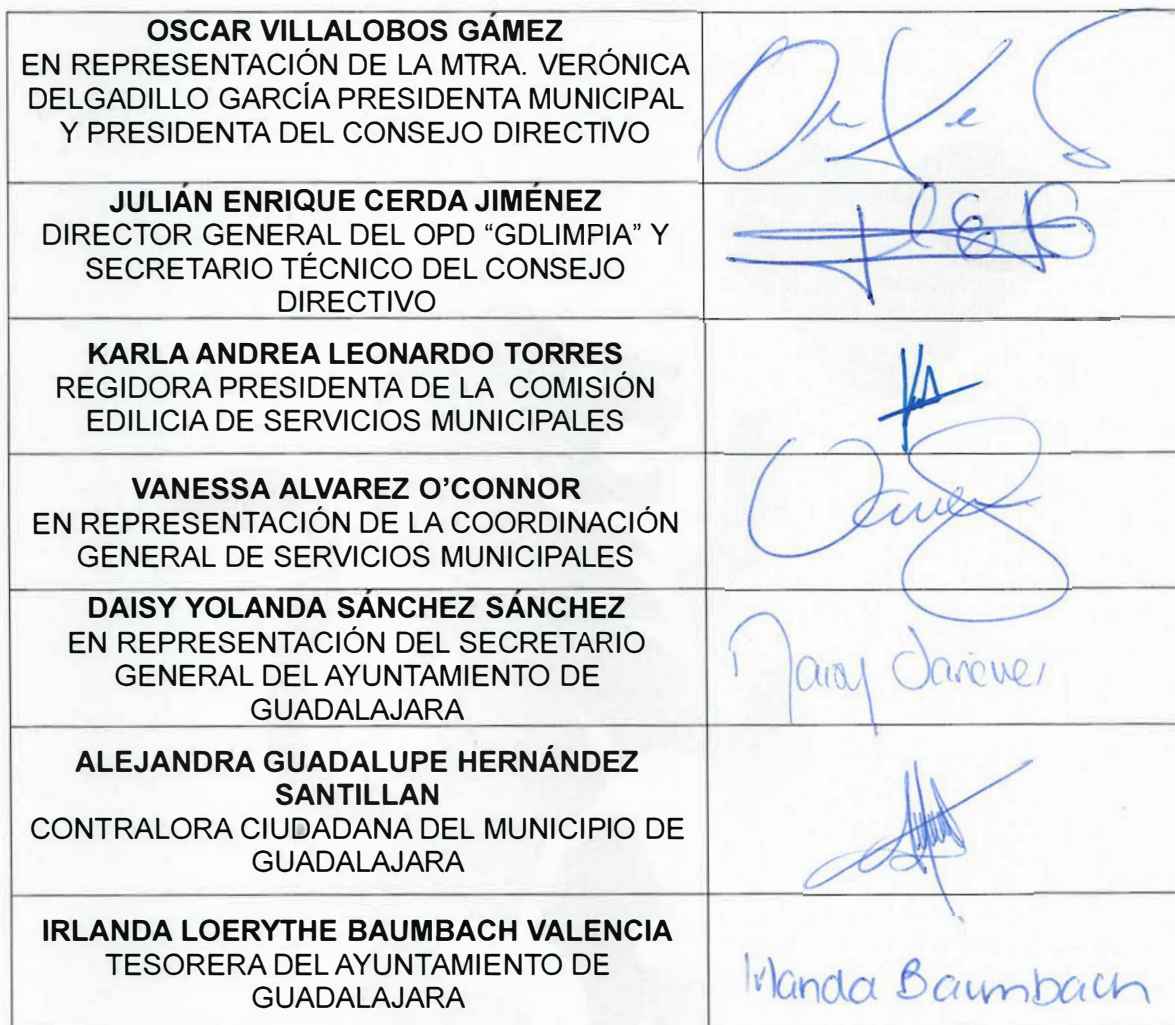 OSCAR VILLALOBOS GÁMEZ
EN REPRESENTACIÓN DE LA MTRA. VERÓNICA
DELGADILLO GARCÍA PRESIDENTA MUNICIPAL
Y PRESIDENTA DEL CONSEJO DIRECTIVO
JULIÁN ENRIQUE CERDA JIMÉNEZ
DIRECTOR GENERAL DEL OPD “GDLIMPIA” Y
SECRETARIO TÉCNICO DEL CONSEJO
DIRECTIVO
KARLA ANDREA LEONARDO TORRES
REGIDORA PRESIDENTA DE LA COMISIÓN
EDILICIA DE SERVICIOS MUNICIPALES
VANESSA ALVAREZ O’CONNOR
EN REPRESENTACIÓN DE LA COORDINACIÓN
GENERAL DE SERVICIOS MUNICIPALES
DAISY YOLANDA SÁNCHEZ SÁNCHEZ
EN REPRESENTACIÓN DEL SECRETARIO
GENERAL DEL AYUNTAMIENTO DE
GUADALAJARA
ALEJANDRA GUADALUPE HERNÁNDEZ
SANTILLAN
CONTRALORA CIUDADANA DEL MUNICIPIO DE
GUADALAJARA
IRLANDA LOERYTHE BAUMBACH VALENCIA
TESORERA DEL AYUNTAMIENTO DE
GUADALAJARA
Irlanda Baumbach